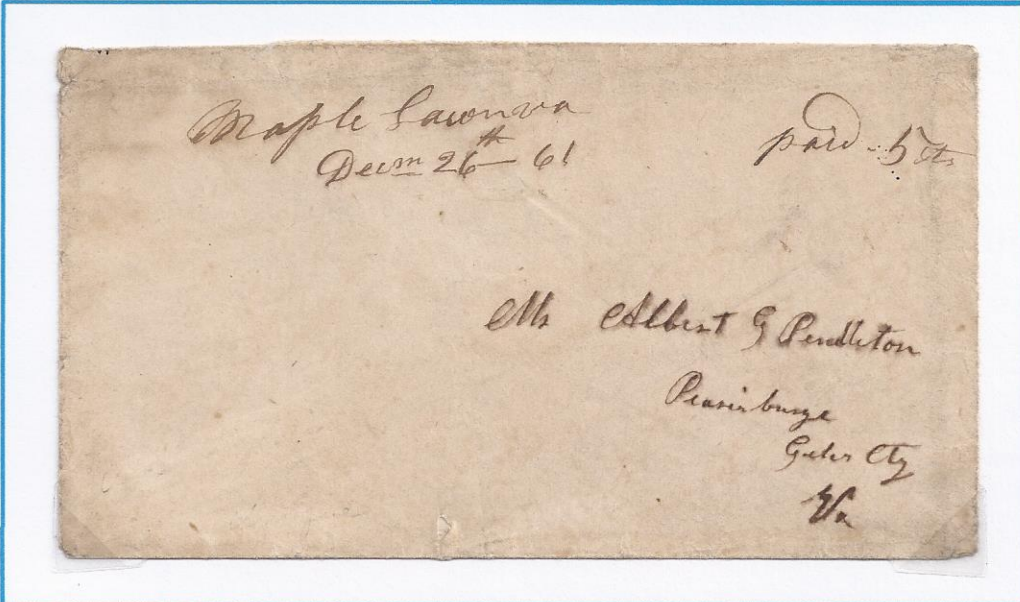 Maple Lawn va
Decm 26th 61
paid 5 cts
Mr Albert G Pendleton
Pearisburge
Giles Cty
Va